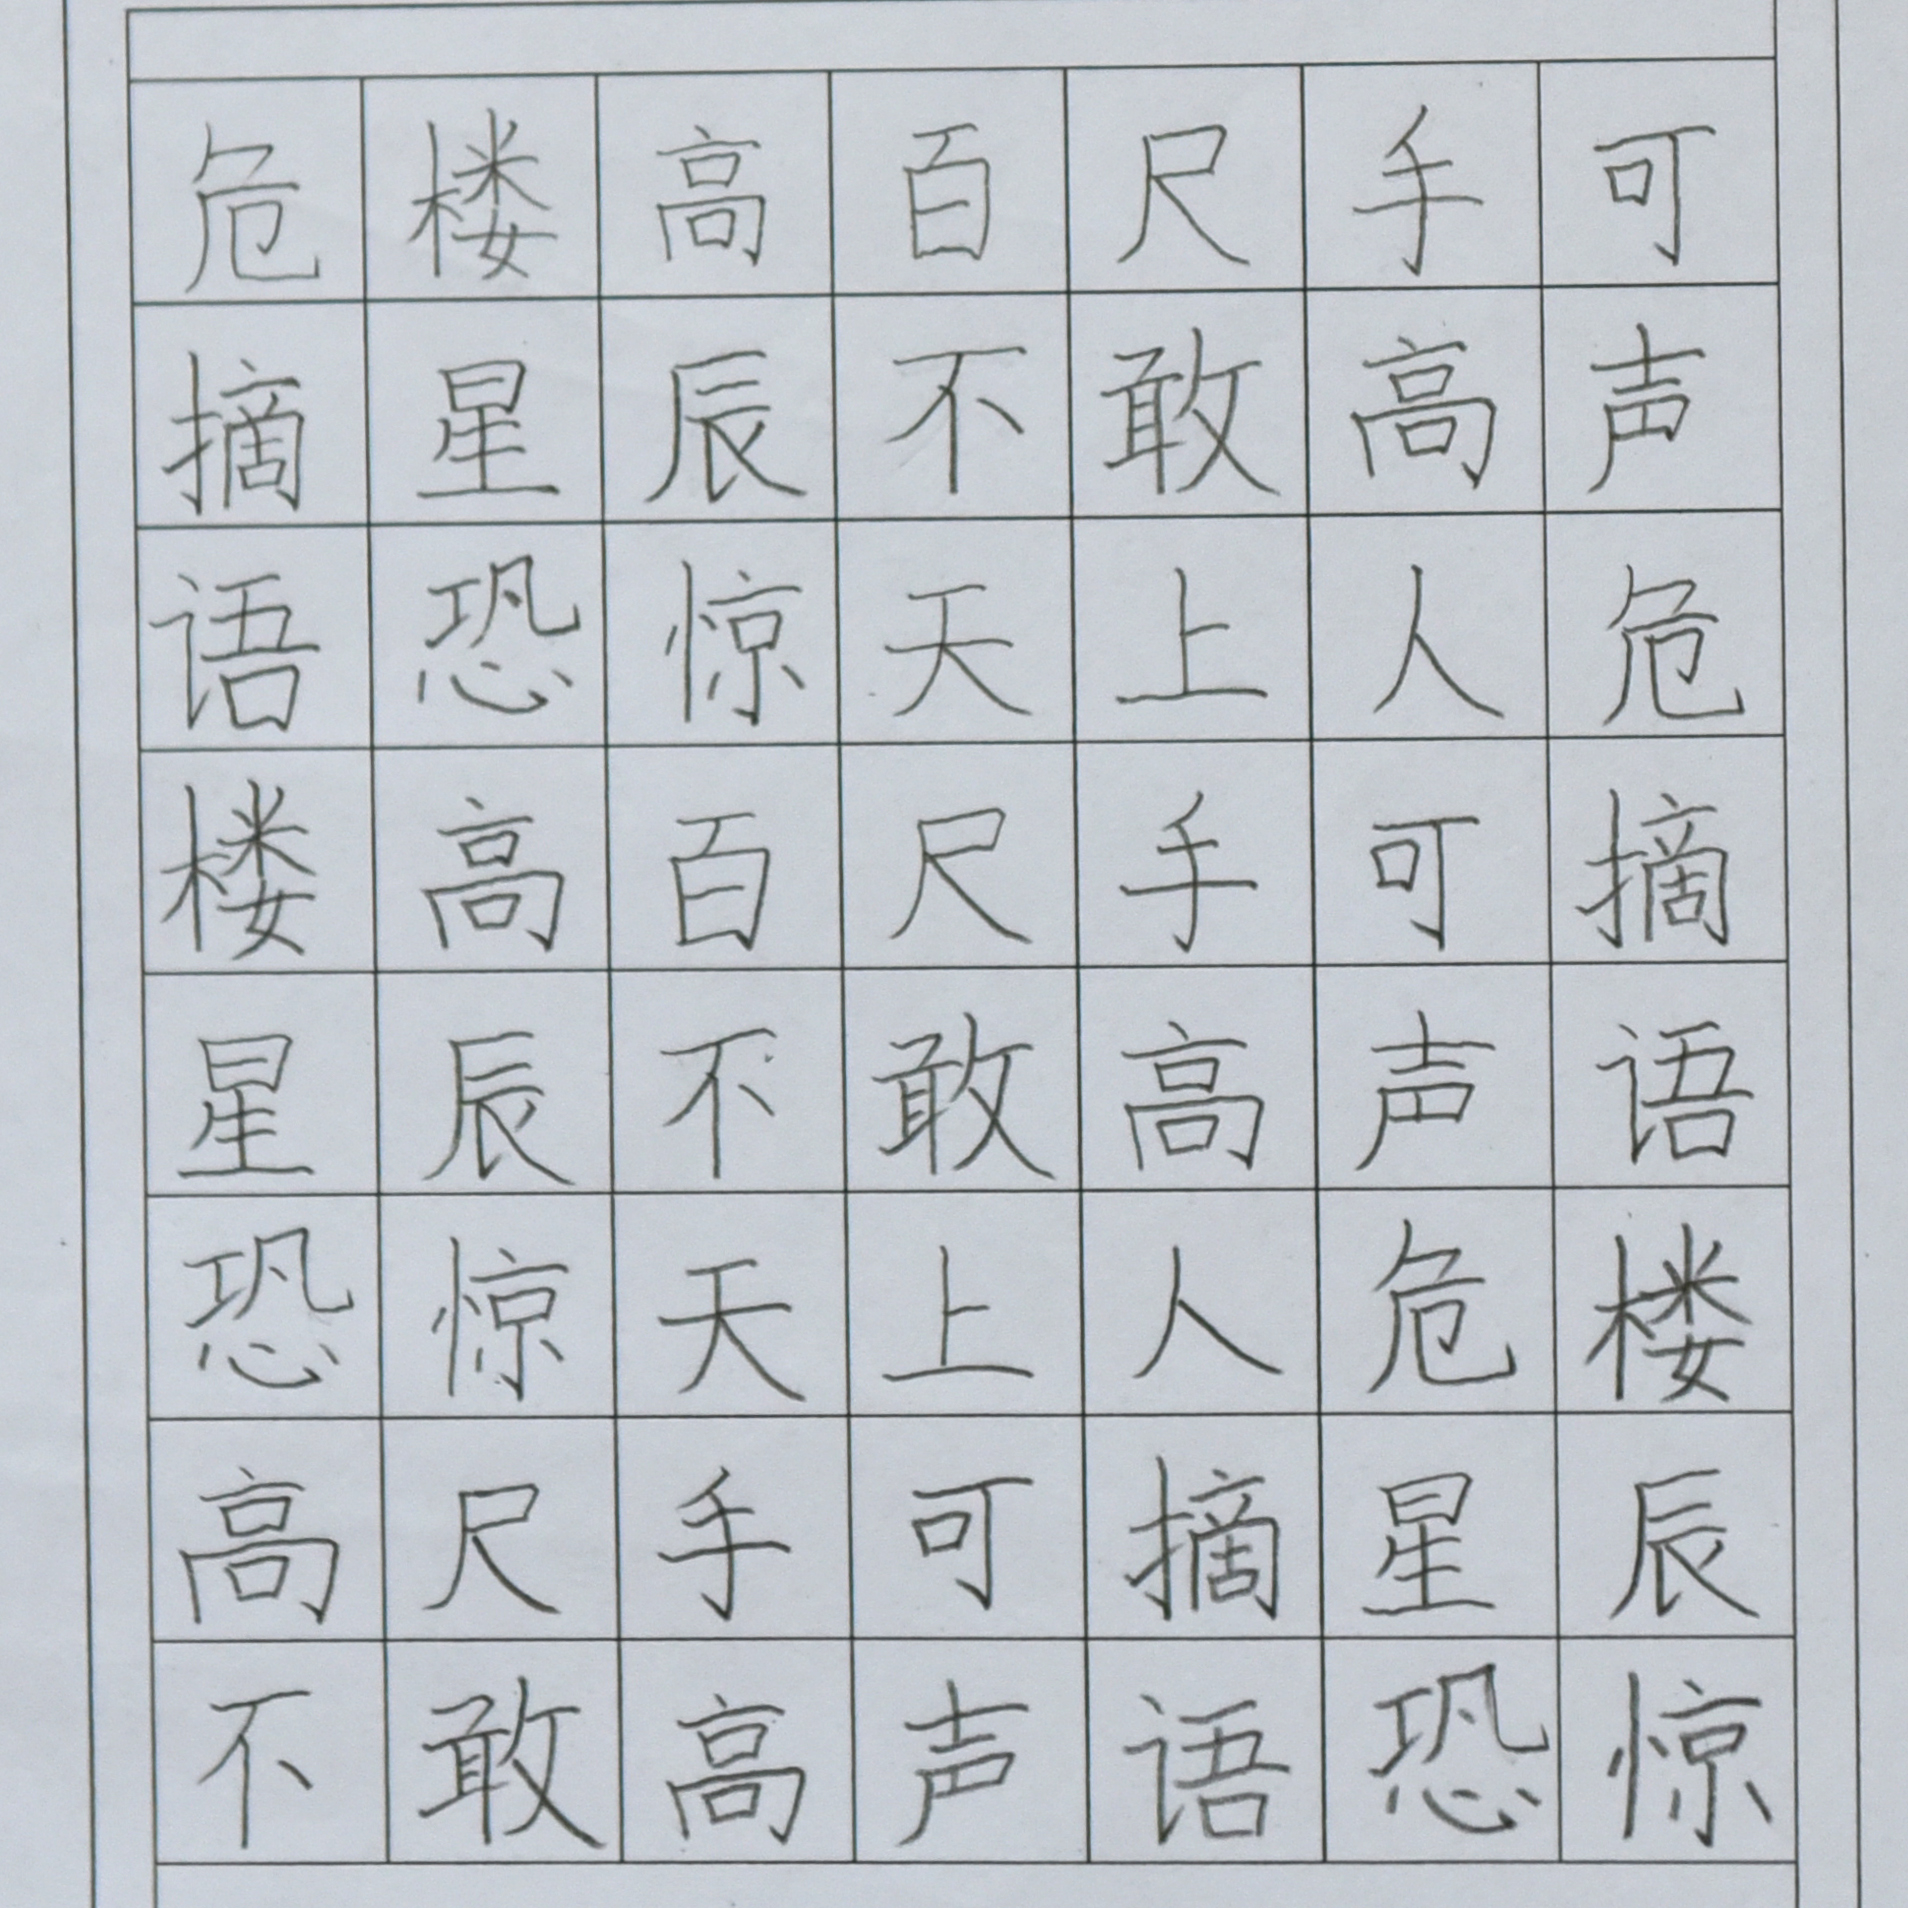 危楼高百尺手可
摘星辰不敢高声
语恐惊天上人危
楼高百尺手可摘
星辰不敢高声语
恐惊天上人危楼
高尺手可摘星辰
不敢高声语恐惊